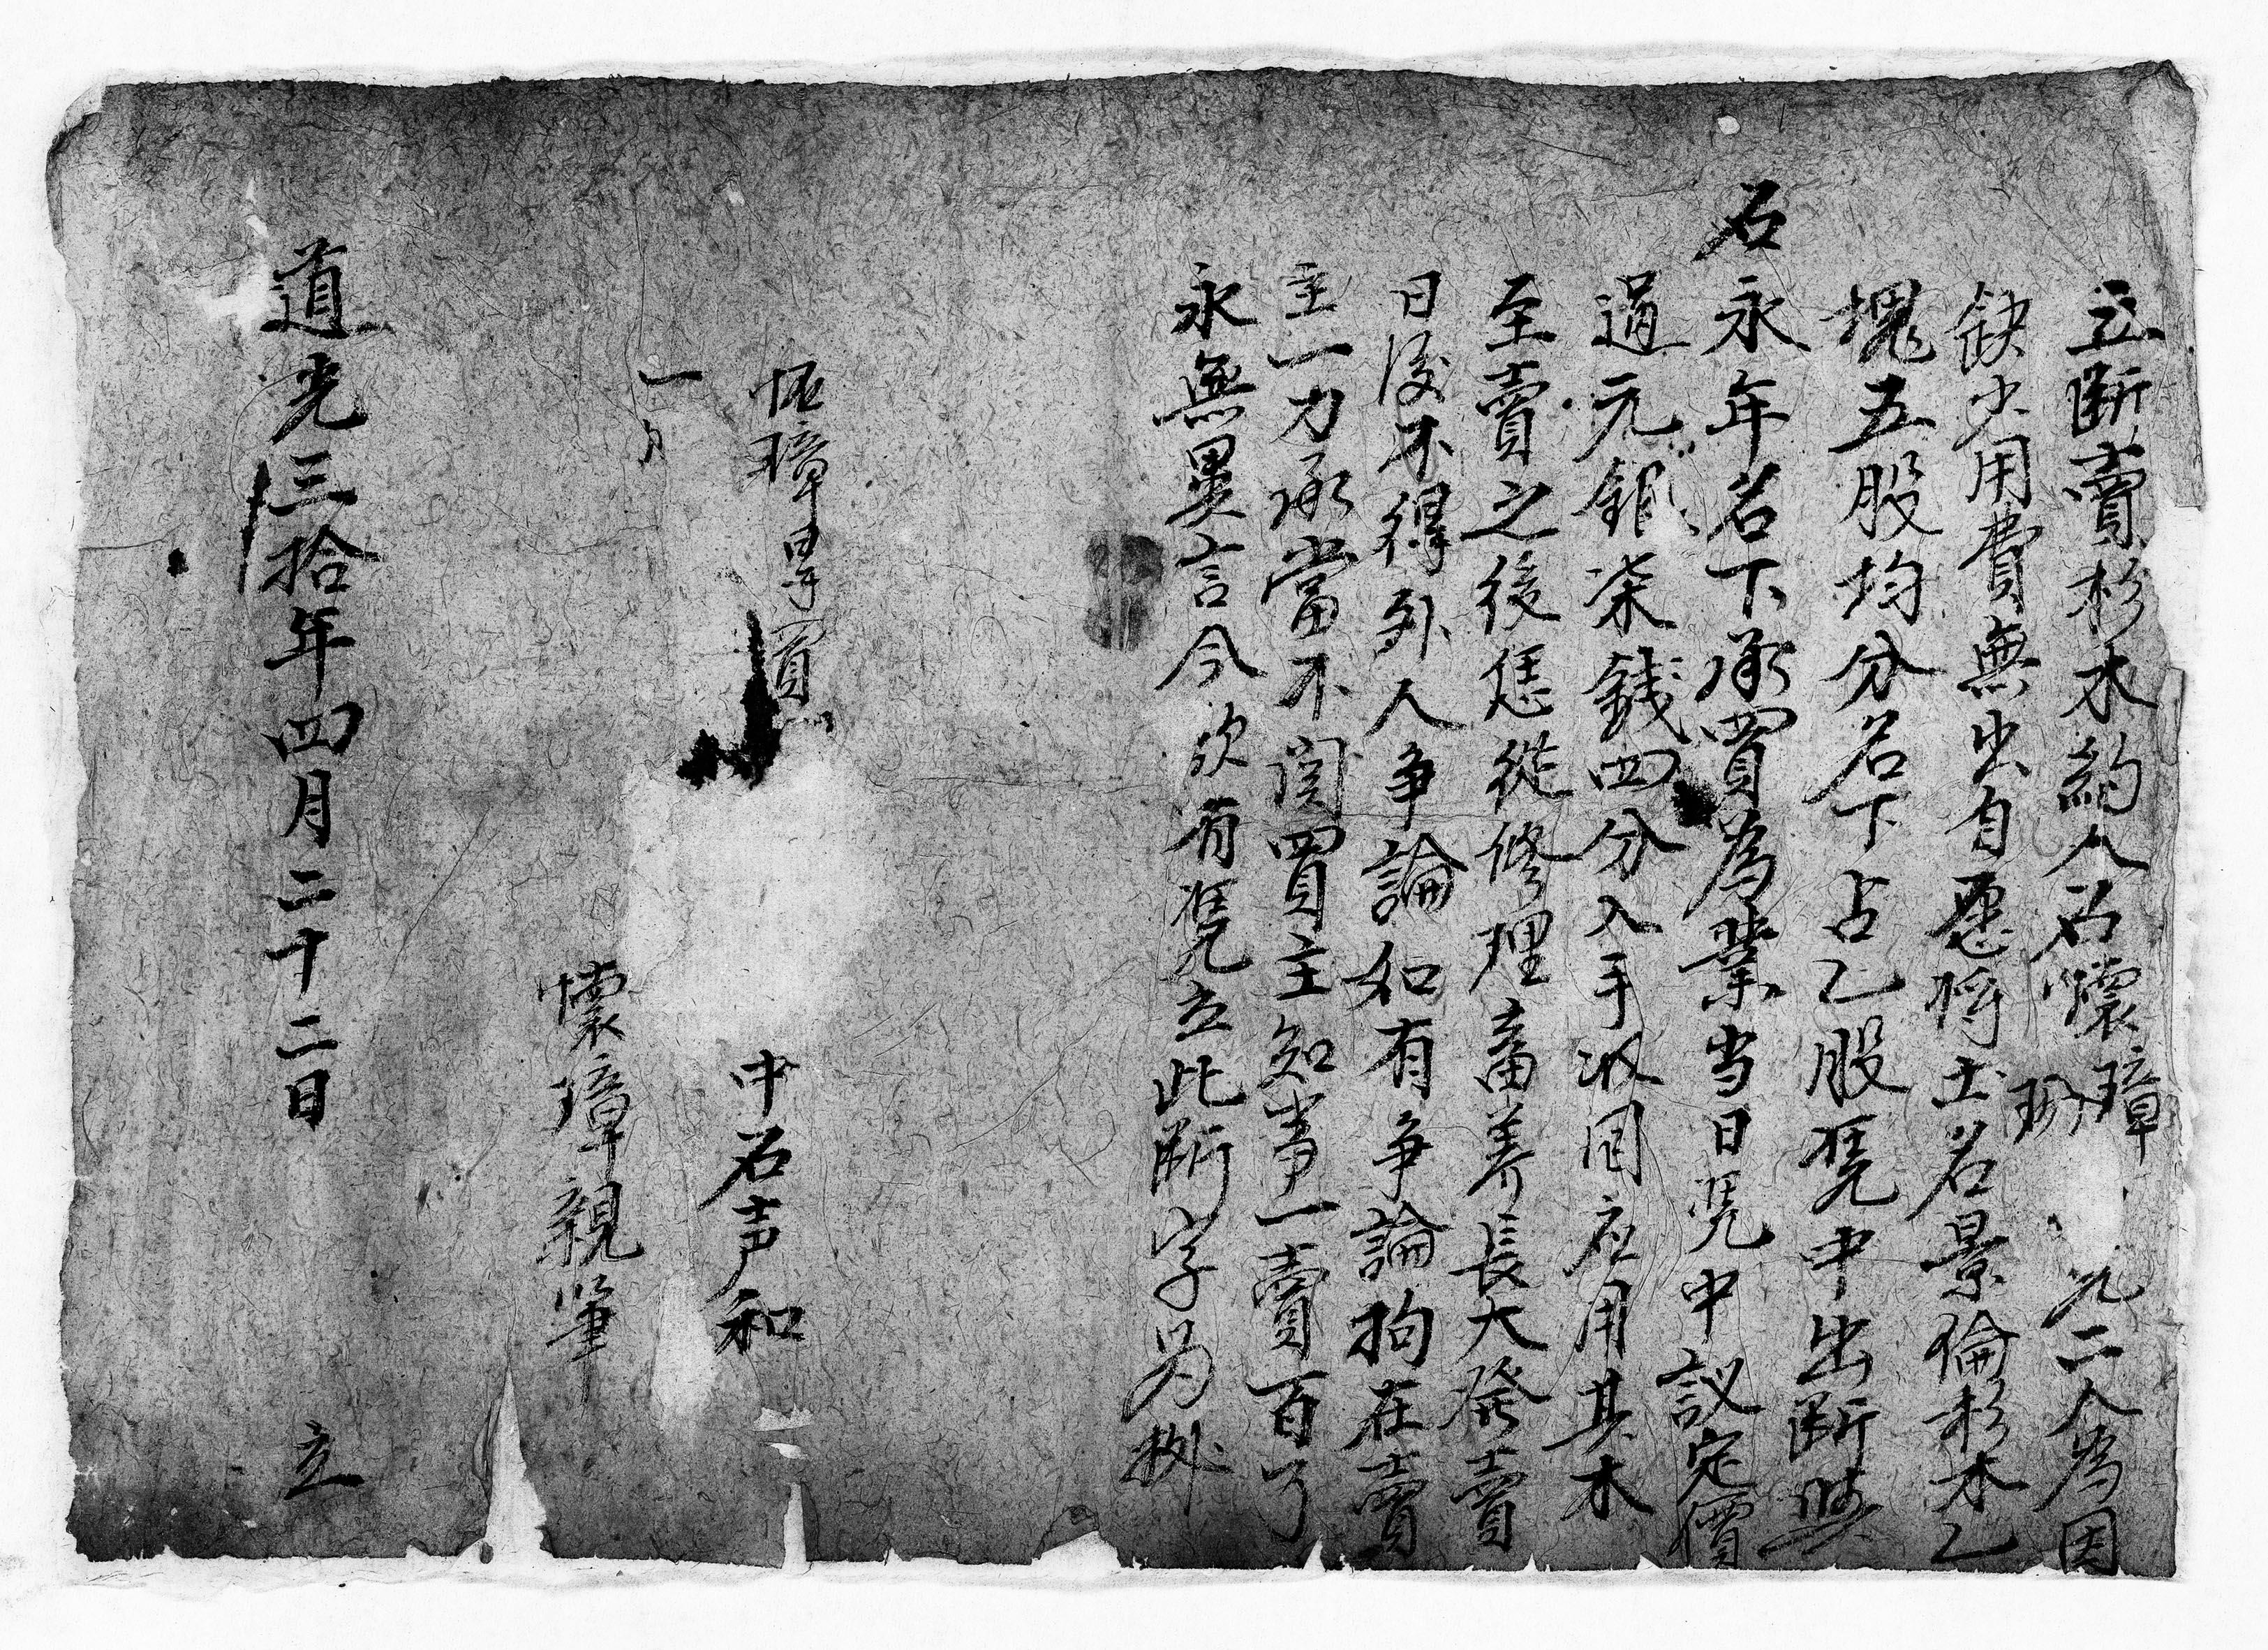 立斷賣杉木約人石懷璋玢兄二人為因
缺少用費無出自愿将土名景倫杉木乙
塊五股均分名下占乙股凴中出斷與
石永年名下承買為業当日凴中議定價
過元銀柒錢四分入手收回应用其木
至賣之後恁從修理畜養長大發賣
日後不得外人争論如有争論拘在賣
主一力承當不関買主知事一賣百了
永無異言今欲有凴立此斷字为拠
中石声和
懷璋親筆
道光三拾年四月二十二日 立